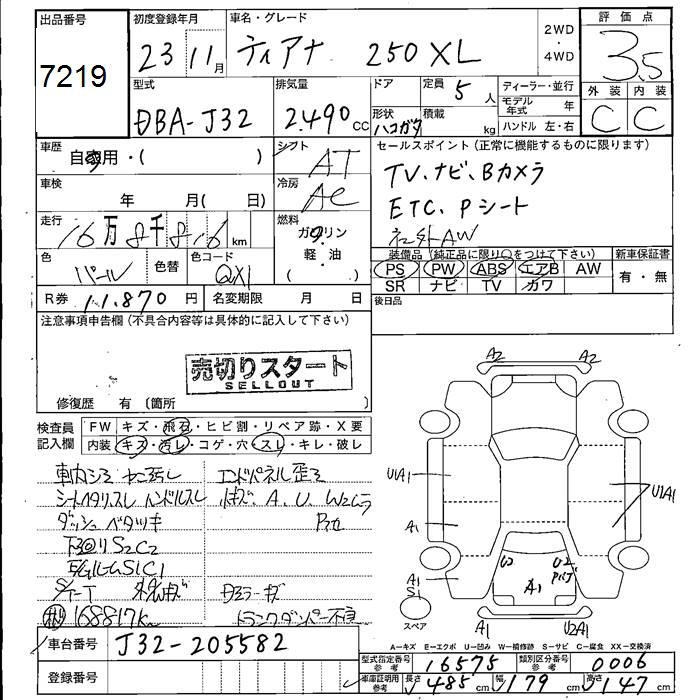 出品番号
7219
初度登録年月
23 11月
車名・グレード
ティアナ 250XL
2WD
・
4WD
評価点
3.5
外装 内装
C C
型式
DBA-J32
排気量
2.490 cc
ドア
形状 ハコガタ
定員 5 人
積載 kg
ディーラー・並行
モデル年式 年
ハンドル 左・右
車歴
自家用・( )
シフト
AT
車検
年 月( 日)
冷房
AC
走行
16万8千8.16 km
燃料
ガソリン
軽・油
( )
色
パール
色替
色コード
QX1
R券 11.870 円
名変期限 月 日
セールスポイント(正常に機能するものに限ります)
TV、ナビ、Bカメラ
ETC、Pシート
社外AW
装備品(純正品に限り○をつけて下さい)
PS PW ABS エアB AW
SR ナビ TV カワ
新車保証書
有・無
後日品
注意事項申告欄(不具合内容等は具体的に記入して下さい)
売切りスタート
SELLOUT
修復歴 有 〔箇所 〕
検査員記入欄
FW キズ・飛石・ヒビ割・リペア跡・X要
内装 キズ・汚レ・コゲ・穴・スレ・キレ・破レ
車内シミ ヤニ汚レ エンドパネル歪ミ
シートヘタリスレ ハンドルスレ
A、U、W2ムラ
ダッシュベタツキ
下回りS2C2
S1C1
168817km
トランクダンパー不良
車台番号 J32-205582
登録番号
A2 A2
U1A1
A1
U1A1
A1
S1
U2
A1
A1 U2A1
スペア
A−キズ E−エクボ U−凹み W−補修跡 S−サビ C−腐食 XX−交換済
型式指定番号 参考 16575
類別区分番号 参考 0006
車庫証明用 参考 長さ 485 cm 幅 179 cm 高さ 147 cm